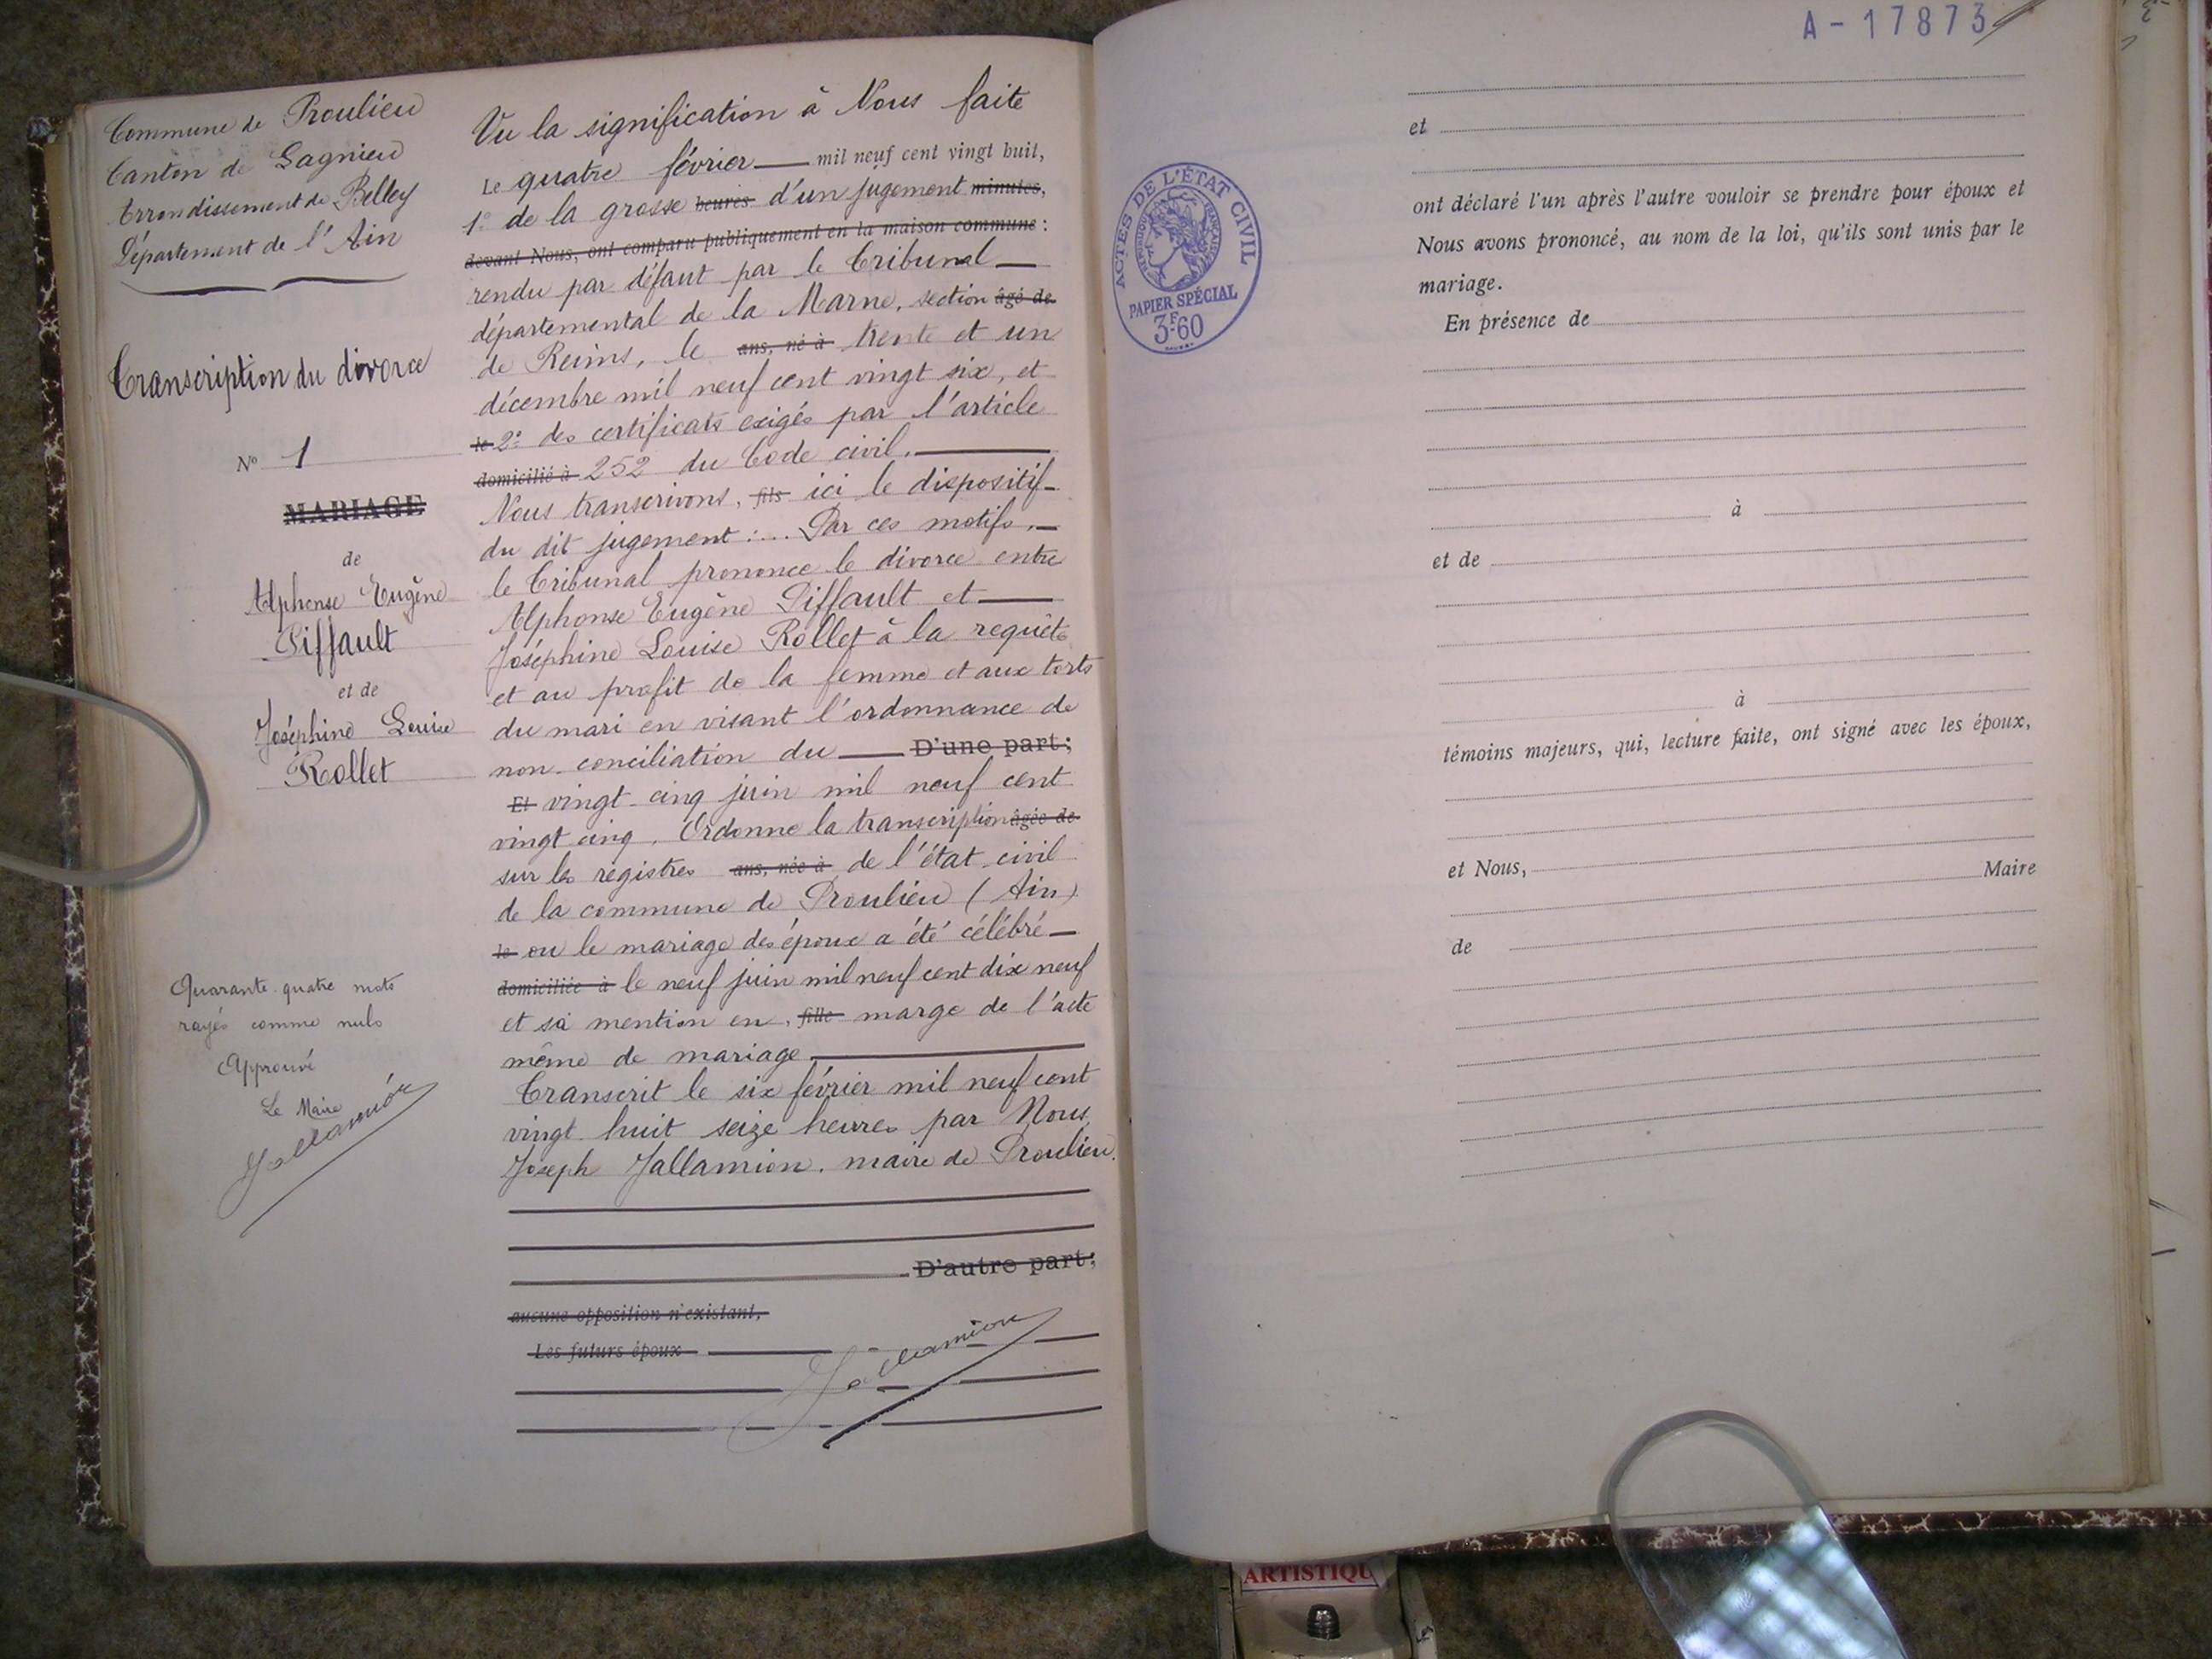 Commune de Proulieu
Canton de Lagnieu
Arrondissement de Belley
Département de l'Ain
Transcription du divorce
N° 1
MARIAGE
de
Alphonse Eugène
Piffault
et de
Joséphine Louise
Rollet
Quarante quatre mots
rayés comme nuls
Approuvé
Le Maire
Jallamion
Vu la signification à Nous faite
Le quatre février mil neuf cent vingt huit,
1° de la grosse heures d'un jugement minutes,
devant Nous, ont comparu publiquement en la maison commune :
rendu par défaut par le Tribunal
départemental de la Marne, section âgé de
de Reims, le ans, né à trente et un
décembre mil neuf cent vingt six, et
le 2° des certificats exigés par l'article
domicilié à 252 du Code civil,
Nous transcrivons, fils ici le dispositif
du dit jugement :... Par ces motifs,
le Tribunal prononce le divorce entre
Alphonse Eugène Piffault et
Joséphine Louise Rollet à la requête
et au profit de la femme et aux torts
du mari en visant l'ordonnance de
non-conciliation du D'une part;
Et vingt-cinq juin mil neuf cent
vingt cinq. Ordonne la transcription âgée de
sur les registres ans, née à de l'état-civil
de la commune de Proulieu (Ain)
le ou le mariage des époux a été célébré
domiciliée à le neuf juin mil neuf cent dix neuf
et sa mention en, fille marge de l'acte
même de mariage.
Transcrit le six février mil neuf cent
vingt-huit seize heures par Nous,
Joseph Jallamion, maire de Proulieu.
D'autre part;
aucune opposition n'existant,
Les futurs époux
Jallamion
A-17873
ACTES DE L'ÉTAT CIVIL
RÉPUBLIQUE FRANÇAISE
PAPIER SPÉCIAL
3F60
et
ont déclaré l'un après l'autre vouloir se prendre pour époux et
Nous avons prononcé, au nom de la loi, qu'ils sont unis par le
mariage.
En présence de
à
et de
à
témoins majeurs, qui, lecture faite, ont signé avec les époux,
et Nous, Maire
de
ARTISTIQU